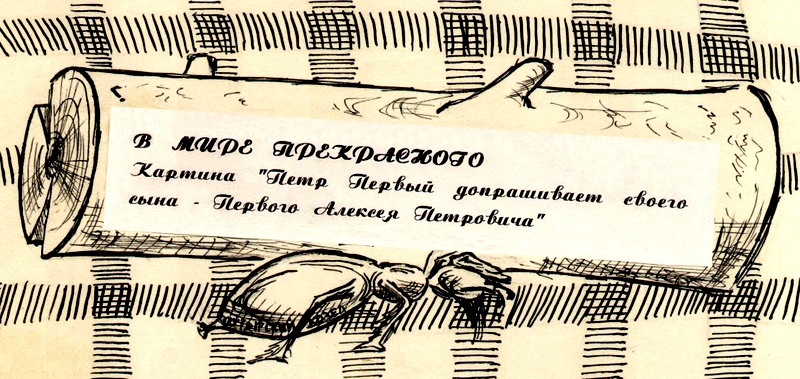 В МИРЕ ПРЕКРАСНОГО
Картина "Петр Первый допрашивает своего
сына - Первого Алексея Петровича"